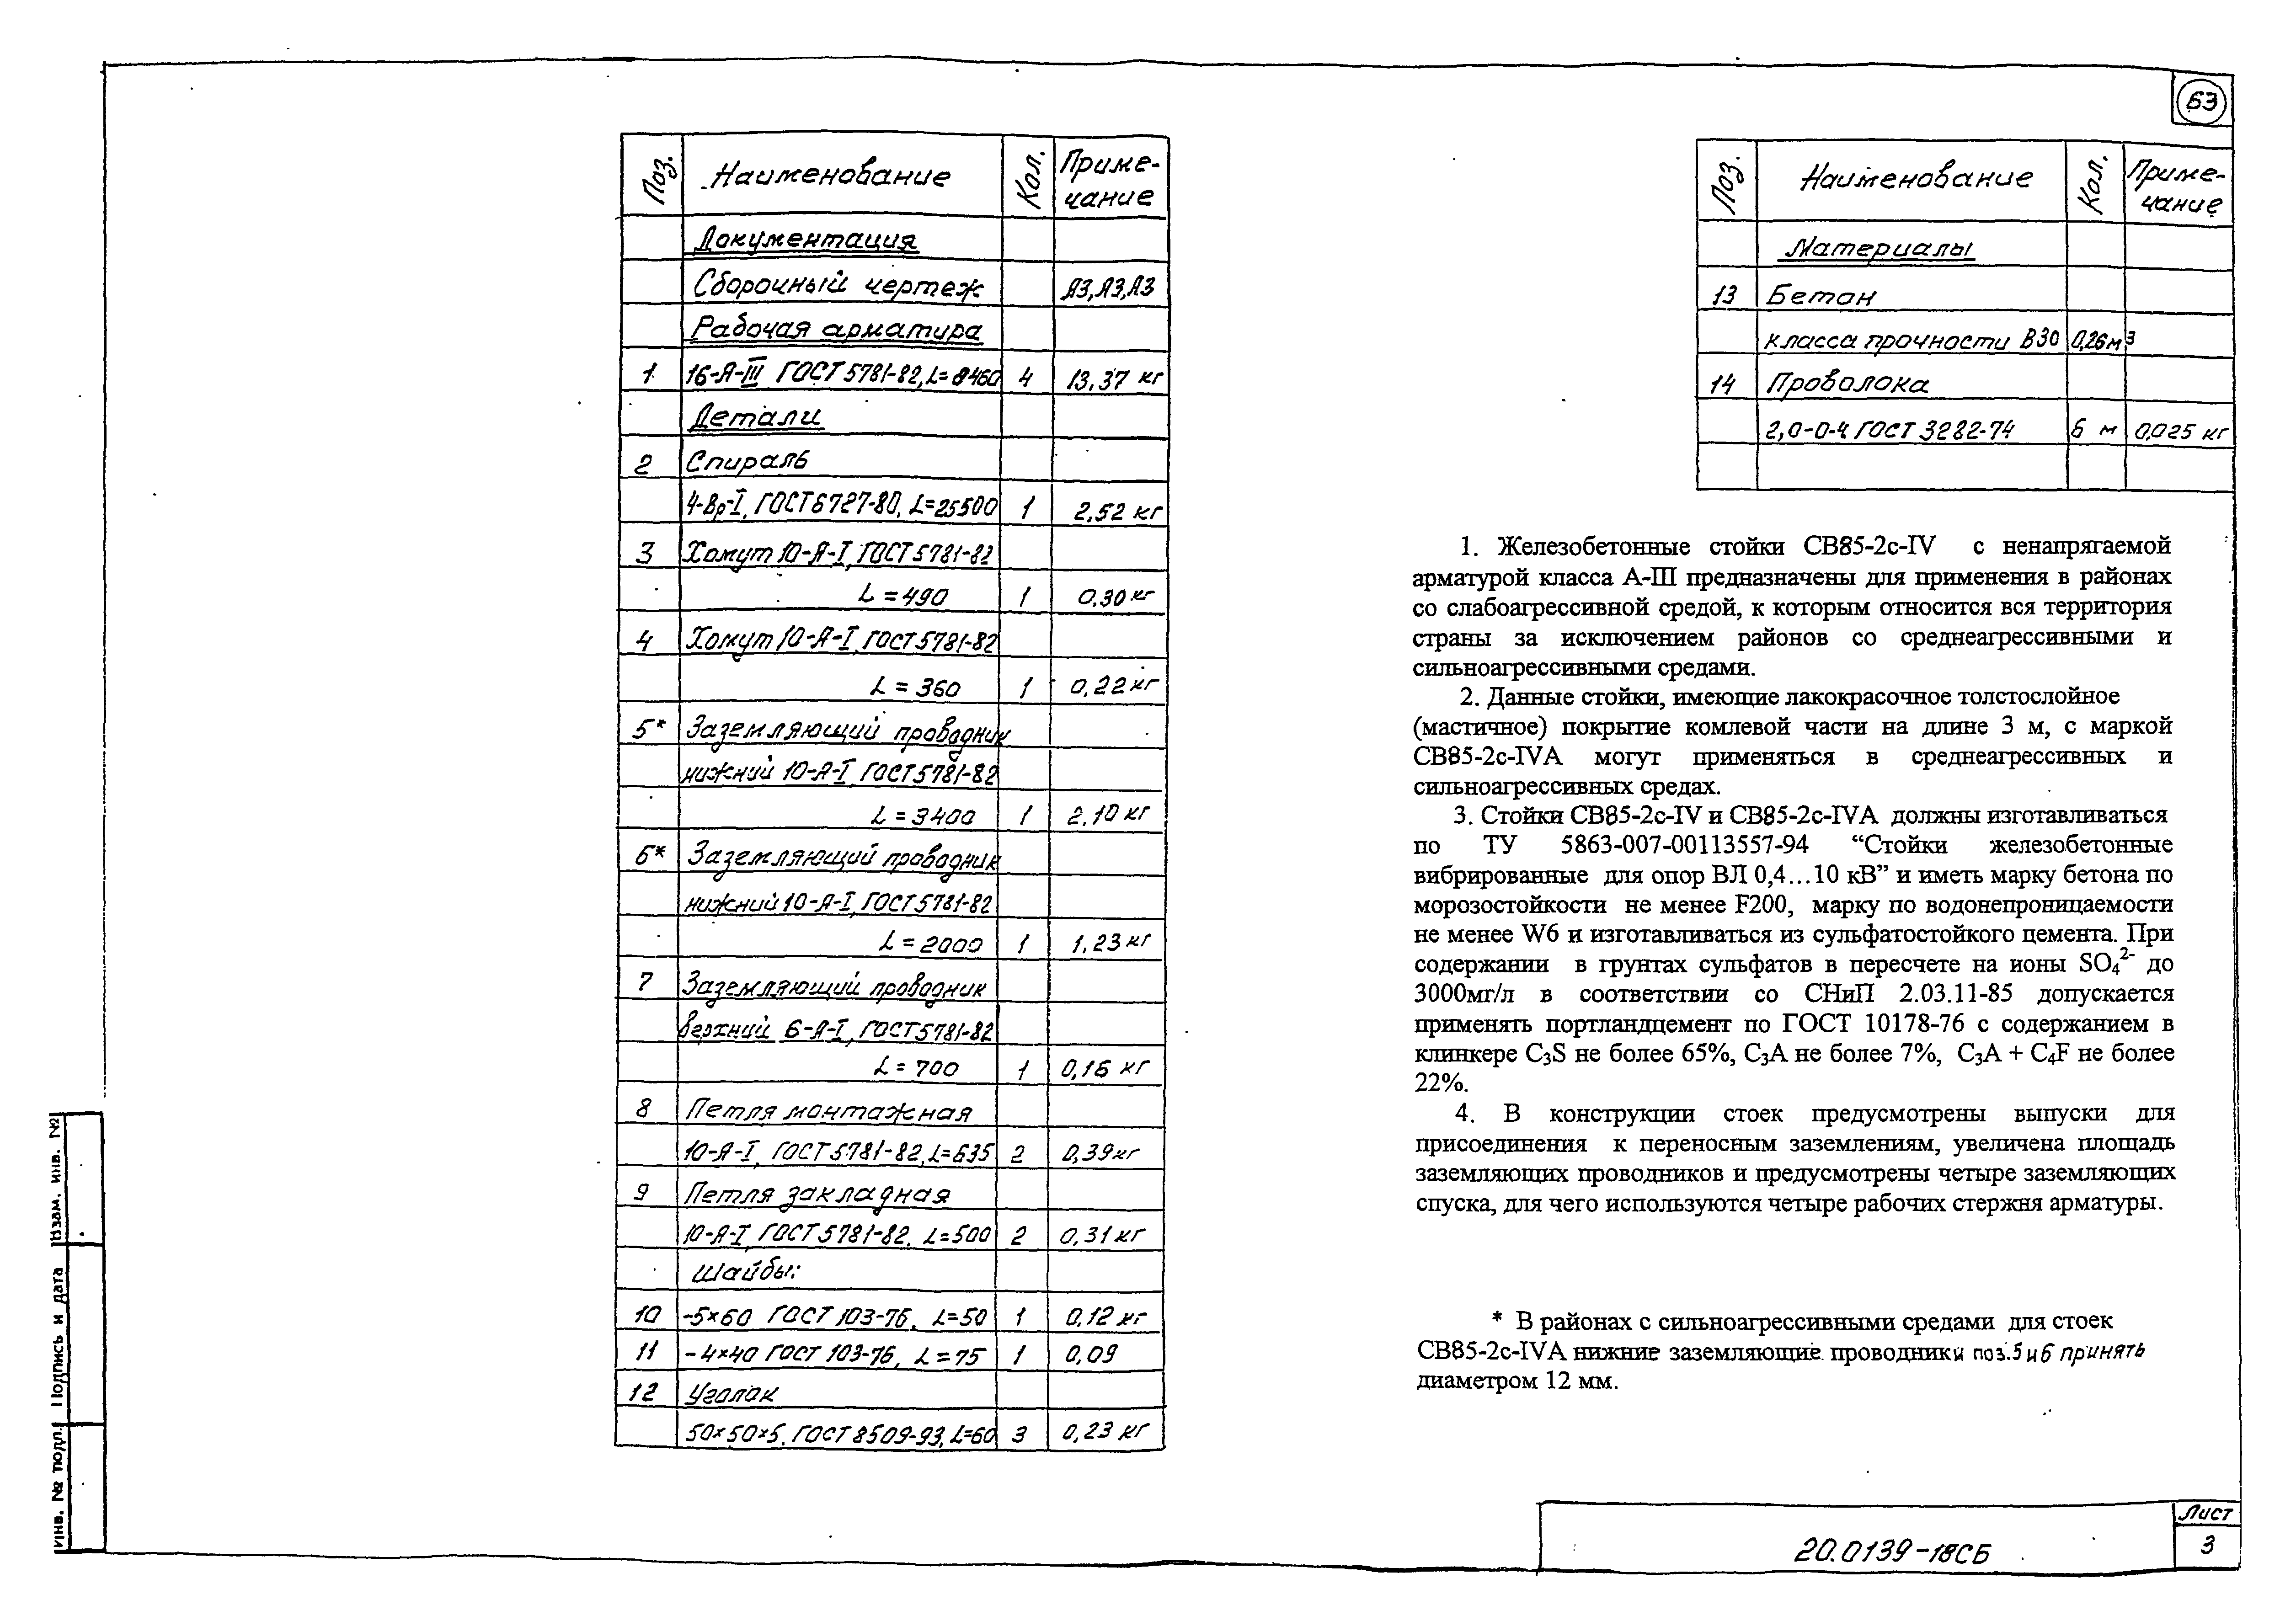 63
Поз. Наименование Кол. Приме-чание
Документация
Сборочный чертеж А3,А3,А3
Рабочая арматура
1 16-А-III ГОСТ 5781-82, L=8460 4 13,37 кг
Детали
2 Спираль
4-Вр-I, ГОСТ 6727-80, L=25500 1 2,52 кг
3 Хомут 10-А-I, ГОСТ 5781-82
L=490 1 0,30 кг
4 Хомут 10-А-I, ГОСТ 5781-82
L=360 1 0,22 кг
5* Заземляющий проводник
нижний 10-А-I, ГОСТ 5781-82
L=3400 1 2.10 кг
6* Заземляющий проводник
нижний 10-А-I, ГОСТ 5781-82
L=2000 1 1,23 кг
7 Заземляющий проводник
верхний 6-А-I, ГОСТ 5781-82
L=700 1 0,16 кг
8 Петля монтажная
10-А-I, ГОСТ 5781-82, L=635 2 0,39 кг
9 Петля закладная
10-А-I, ГОСТ 5781-82, L=500 2 0,31 кг
Шайбы:
10 -5×60 ГОСТ 103-76, L=50 1 0,12 кг
11 -4×40 ГОСТ 103-76, L=75 1 0,09
12 Уголок
50×50×5, ГОСТ 8509-93, L=60 3 0,23 кг
Поз. Наименование Кол. Приме-чание
Материалы
13 Бетон
класса прочности В30 0,26м3
14 Проволока
2,0-0-Ч ГОСТ 3282-74 6 м 0,025 кг
1. Железобетонные стойки СВ85-2с-IV с ненапрягаемой
арматурой класса А-III предназначены для применения в районах
со слабоагрессивной средой, к которым относится вся территория
страны за исключением районов со среднеагрессивными и
сильноагрессивными средами.
2. Данные стойки, имеющие лакокрасочное толстослойное
(мастичное) покрытие комлевой части на длине 3 м, с маркой
СВ85-2с-IVА могут применяться в среднеагрессивных и
сильноагрессивных средах.
3. Стойки СВ85-2с-IV и СВ85-2с-IVА должны изготавливаться
по ТУ 5863-007-00113557-94 “Стойки железобетонные
вибрированные для опор ВЛ 0,4...10 кВ” и иметь марку бетона по
морозостойкости не менее F200, марку по водонепроницаемости
не менее W6 и изготавливаться из сульфатостойкого цемента. При
содержании в грунтах сульфатов в пересчете на ионы SO₄²⁻ до
3000мг/л в соответствии со СНиП 2.03.11-85 допускается
применять портландцемент по ГОСТ 10178-76 с содержанием в
клинкере C₃S не более 65%, C₃A не более 7%, C₃A + C₄F не более
22%.
4. В конструкции стоек предусмотрены выпуски для
присоединения к переносным заземлениям, увеличена площадь
заземляющих проводников и предусмотрены четыре заземляющих
спуска, для чего используются четыре рабочих стержня арматуры.
* В районах с сильноагрессивными средами для стоек
СВ85-2с-IVА нижние заземляющие проводники поз.5 и 6 принять
диаметром 12 мм.
Инв. № подл. Подпись и дата Взам. инв. №
20.0139-18СБ
Лист
3